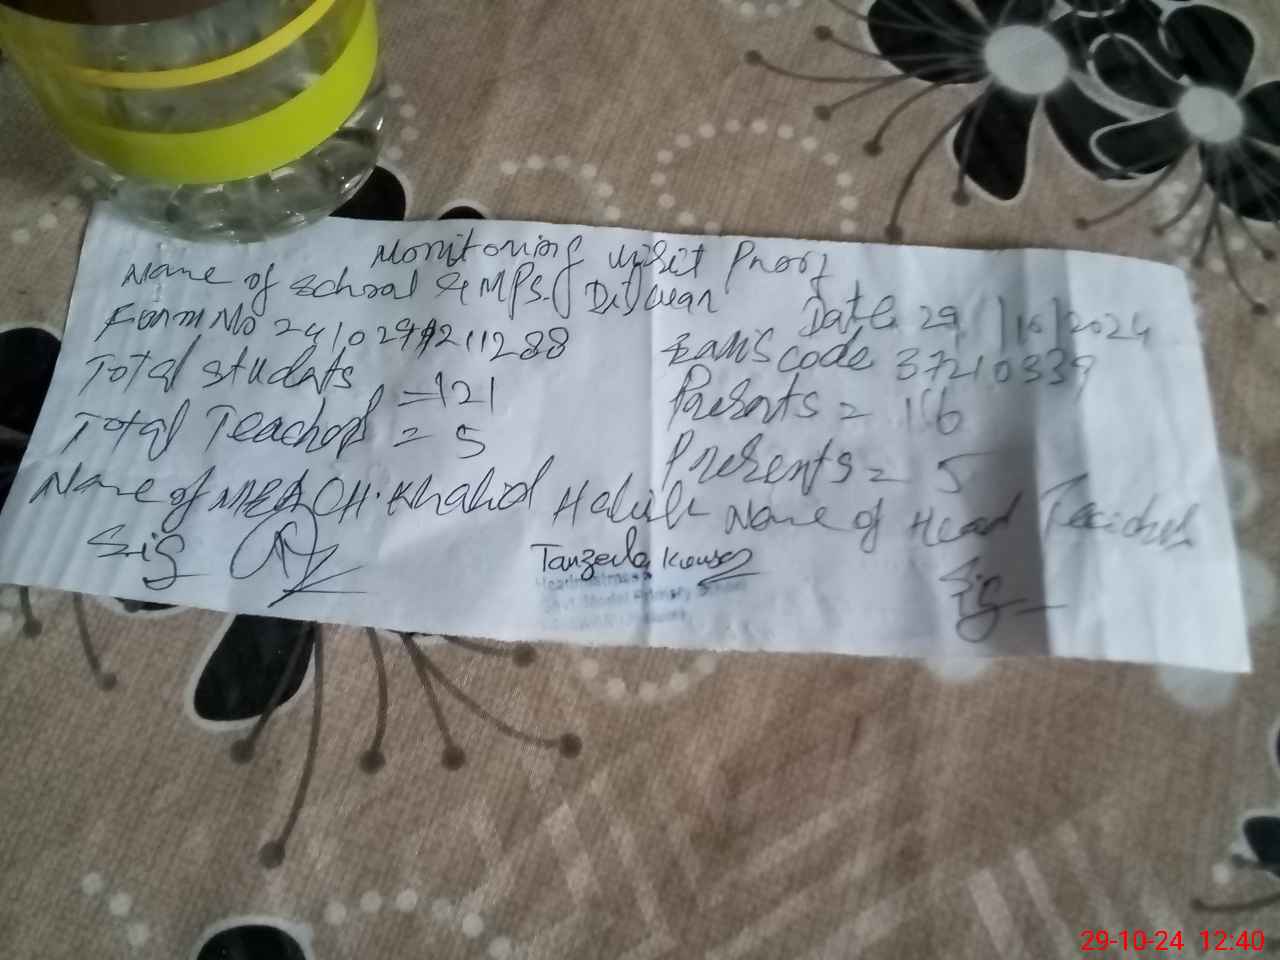 Monitoring visit Proof
Name of School GMPS. Ditwean
Date 29/10/2024
Form No 241029211288
Emis code 37210339
Total students =121
Presents = 116
Total Teachers = 5
Presents = 5
Name of MEA CH. Khalid Name of Head Teacher
Sig
Tanzeela Kousar
Sig
29-10-24 12:40